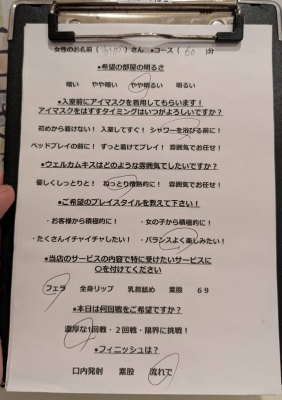 女性のお名前 ( ) さん ●コース ( 60 )分
●希望の部屋の明るさ
暗い やや暗い やや明るい 明るい
●入室前にアイマスクを着用してもらいます!
アイマスクをはずすタイミングはいつがよろしいですか?
初めから着けない! 入室してすぐ! シャワーを浴びる前に!
ベッドプレイの前に! ずっと着けてプレイ! 雰囲気でお任せ!
●ウェルカムキスはどのような雰囲気でしたいですか?
優しくしっとりと! ねっとり情熱的に! 雰囲気でお任せ!
●ご希望のプレイスタイルを教えて下さい!
・お客様から積極的に! ・女の子から積極的に!
・たくさんイチャイチャしたい! ・バランスよく楽しみたい!
●当店のサービスの内容で特に受けたいサービスに
○を付けてください
フェラ 全身リップ 乳首舐め 素股 69
●本日は何回戦をご希望ですか?
濃厚な1回戦・2回戦・限界に挑戦!
●フィニッシュは?
口内発射 素股 流れで